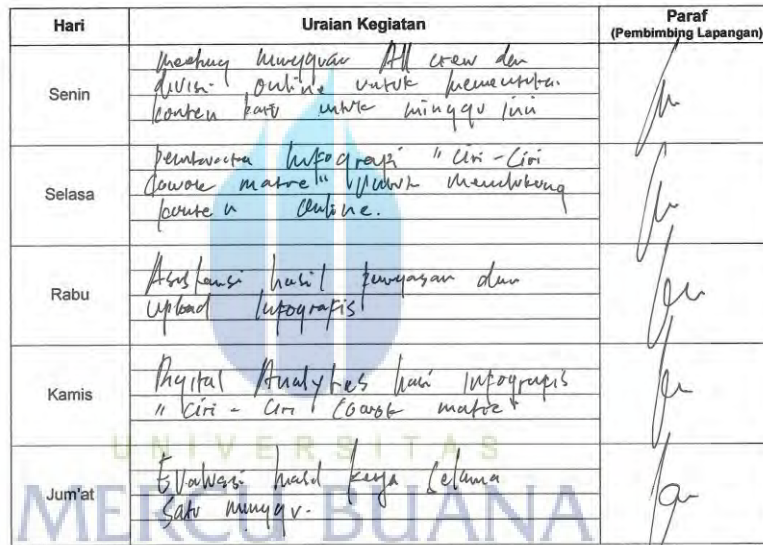 Hari Uraian Kegiatan Paraf
(Pembimbing Lapangan)
Senin
meeting mingguan All crew dan
divisi online untuk menentukan
konten baru untuk minggu ini
Selasa
pembuatan Infografis "Ciri-Ciri
Cowok matre" untuk mendukung
konten Online.
Rabu
Asistensi hasil dan
upload Infografis
Kamis
Digital Analytics hasil Infografis
"Ciri - Ciri Cowok matre"
UNIVERSITAS
Jum'at
Evaluasi hasil kerja selama
satu minggu.
MERCU BUANA